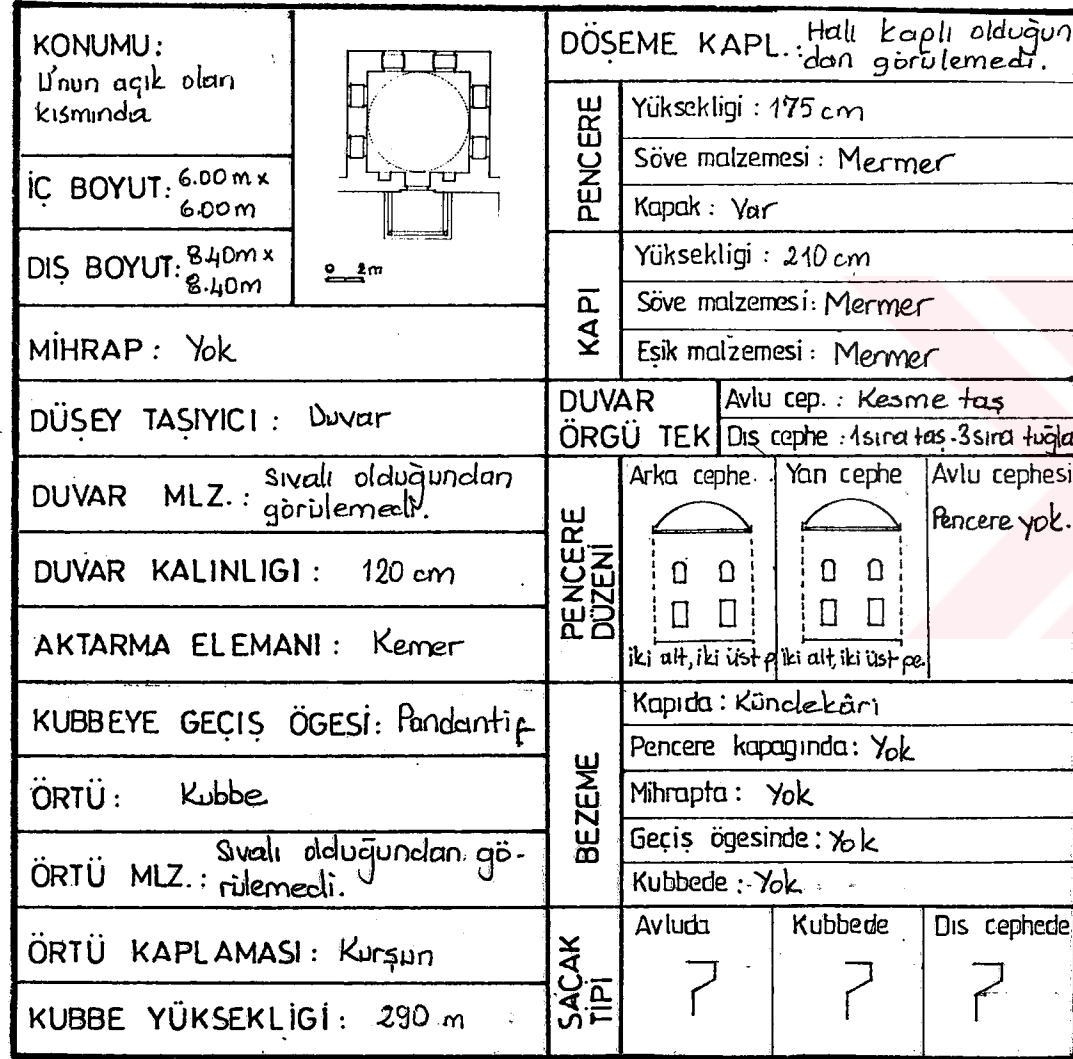 KONUMU:
U'nun açık olan
kısmında
İÇ BOYUT: 6.00 m x
6.00 m
DIŞ BOYUT: 8.40m x
8.40m
0 2m
MİHRAP: Yok
DÜŞEY TAŞIYICI: Duvar
DUVAR MLZ.: Sıvalı olduğundan
görülemedi.
DUVAR KALINLIGI: 120 cm
AKTARMA ELEMANI: Kemer
KUBBEYE GEÇİŞ ÖGESİ: Pandantif
ÖRTÜ: Kubbe
ÖRTÜ MLZ.: Sıvalı olduğundan gö-
rülemedi.
ÖRTÜ KAPLAMASI: Kurşun
KUBBE YÜKSEKLİGİ: 290 m
DÖŞEME KAPL.: Halı kaplı olduğun
dan görülemedi.
PENCERE
Yüksekligi: 175 cm
Söve malzemesi: Mermer
Kapak: Var
KAPI
Yüksekligi: 210 cm
Söve malzemesi: Mermer
Eşik malzemesi: Mermer
DUVAR
ÖRGÜ TEK
Avlu cep.: Kesme taş
Dış cephe: 1sıra taş-3sıra tuğla
PENCERE
DÜZENİ
Arka cephe.
iki alt, iki üst p
Yan cephe
iki alt, iki üst pe.
Avlu cephesi
Pencere yok.
BEZEME
Kapıda: Kündekâri
Pencere kapagında: Yok
Mihrapta: Yok
Geçiş ögesinde: Yok
Kubbede: Yok
SAÇAK
TİPİ
Avluda
Kubbede
Dıs cephede